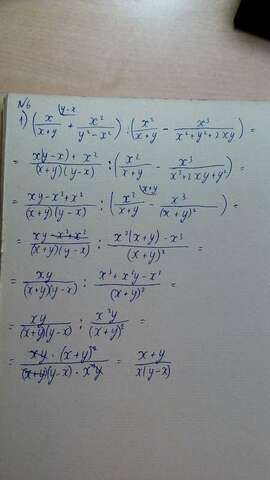 №6
1) (x/(x+y) + x²/(y²-x²)) : (x²/(x+y) - x³/(x²+y²+2xy)) =
= (x(y-x)+x²)/((x+y)(y-x)) : (x²/(x+y) - x³/(x²+2xy+y²)) =
= (xy-x²+x²)/((x+y)(y-x)) : (x²/(x+y) - x³/(x+y)²) =
= (xy-x²+x²)/((x+y)(y-x)) : (x²(x+y)-x³)/(x+y)² =
= xy/((x+y)(y-x)) : (x³+x²y-x³)/(x+y)² =
= xy/((x+y)(y-x)) : x²y/(x+y)² =
= (xy·(x+y)²)/((x+y)(y-x)·x²y) = (x+y)/(x(y-x))